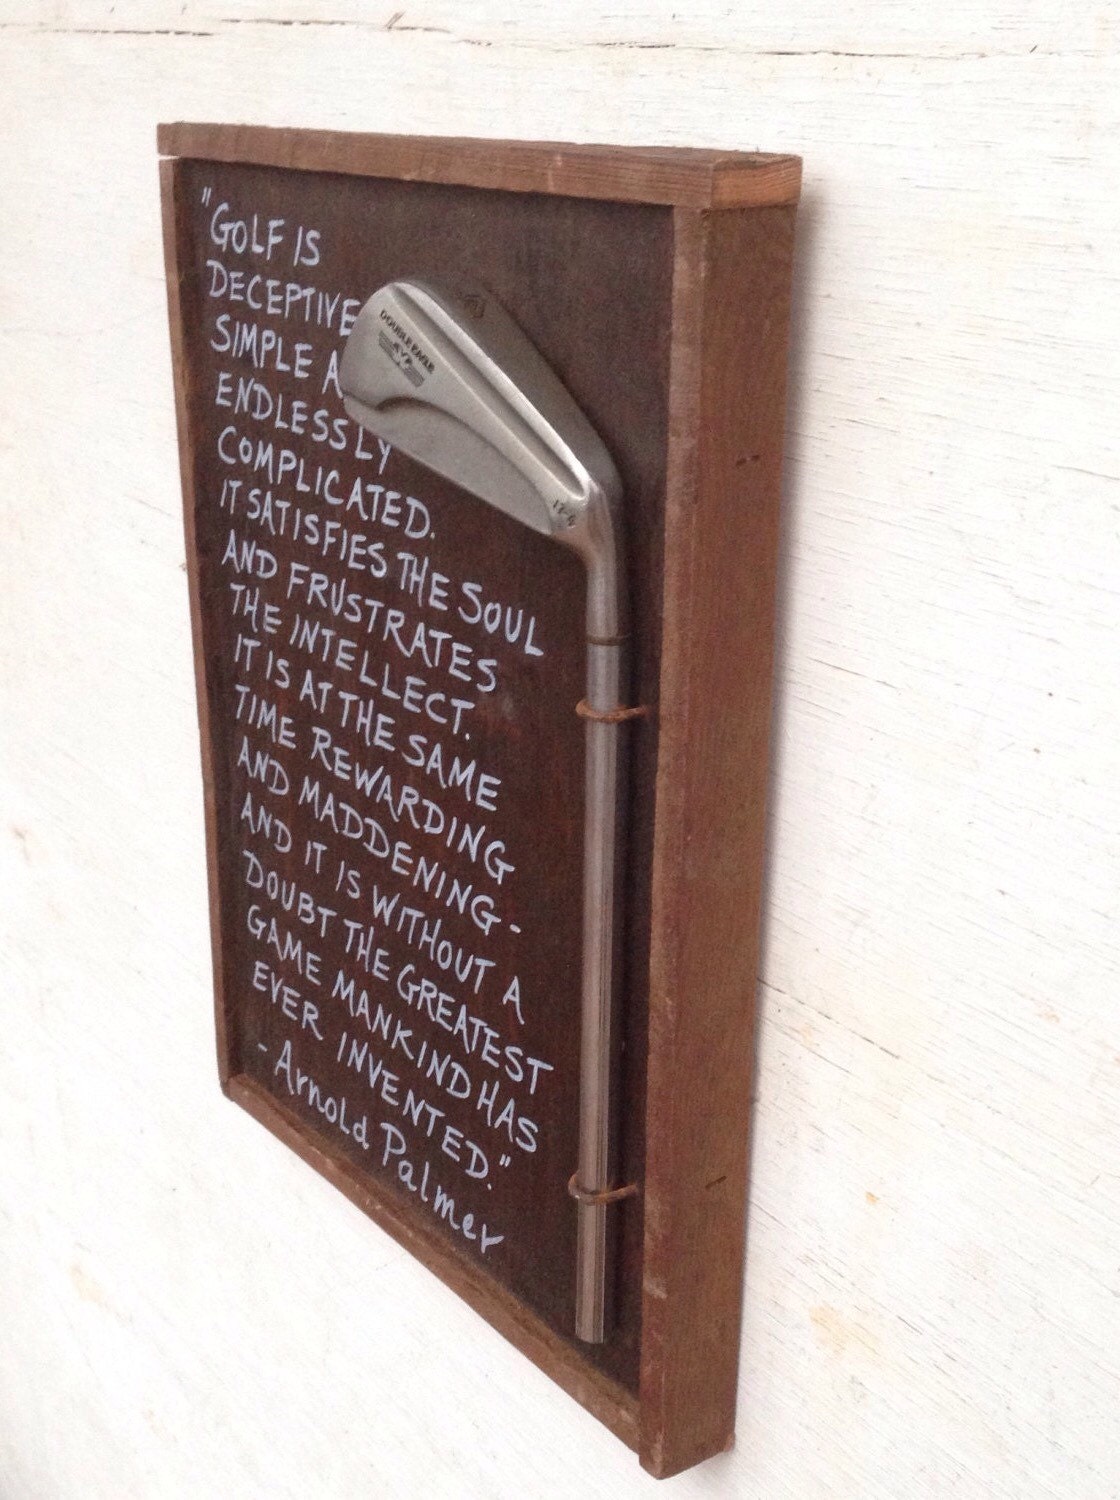 "GOLF IS
DECEPTIVE
SIMPLE A
ENDLESSLY
COMPLICATED.
IT SATISFIES THE SOUL
AND FRUSTRATES
THE INTELLECT.
IT IS AT THE SAME
TIME REWARDING
AND MADDENING-
AND IT IS WITHOUT A
DOUBT THE GREATEST
GAME MANKIND HAS
EVER INVENTED."
- Arnold Palmer
DOUBLE EAGLE